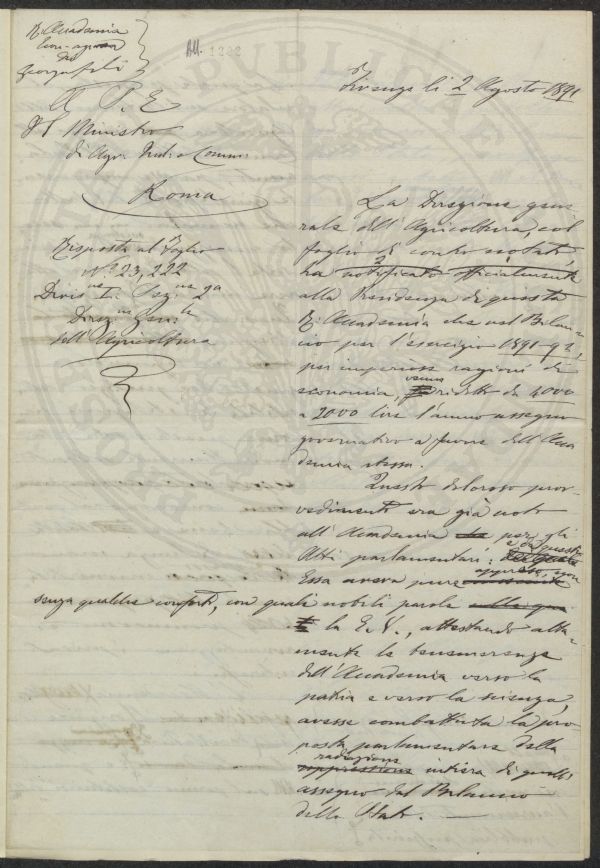 R. Accademia
Econ-agraria
dei
Georgofili
All. 1292
Firenze li 2 Agosto 1891
A S. E.
Il Ministro
di Agr. Ind. e Comm.
Roma
Risposta al Foglio
N.° 23,222
Divis.ne I. Sez.ne 2a
Direz.ne Gen.le
dell'Agricoltura
La Direzione gene
rale dell'Agricoltura, col
foglio di contro notato,
ha notificato officialmente
alla Presidenza di questa
R. Accademia che nel Bilan-
cio per l'esercizio 1891-92,
per imperiose ragioni di
economia, venne ridotto da 4000
a 2000 lire l'annuo assegno
governativo a favore dell'Acca
demia stessa.
Questo doloroso prov-
vedimento era già noto
all'Accademia per gli
Atti parlamentari; e da questi
Essa aveva pure appreso, non
senza qualche conforto, con quali nobili parole
la E. V., attestando alta-
mente le benemerenze
dell'Accademia verso la
patria e verso la scienza,
avesse combattuta la pro-
posta parlamentare della
radiazione intiera di quell'
assegno dal Bilancio
dello Stato.
PUBLICAE
PROSPERITATI